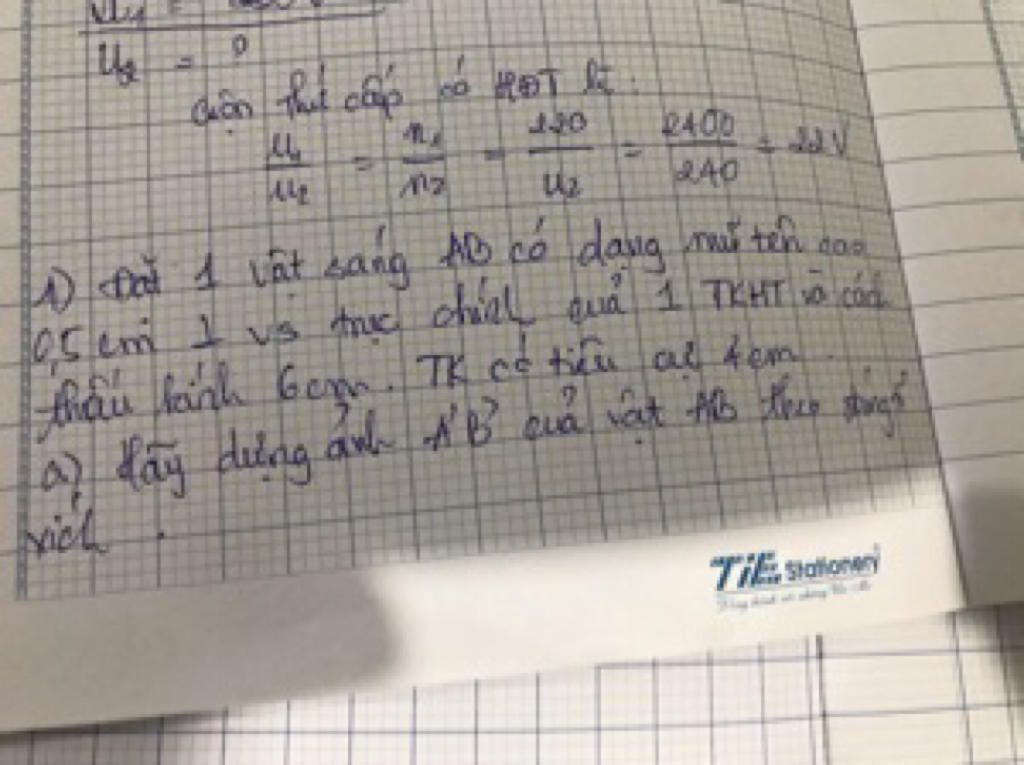 U₂ = ?
cuộn thứ cấp có HĐT là:
U₁/U₂ = n₁/n₂ = 220/U₂ = 2400/240 = 22V
1) Đặt 1 vật sáng AB có dạng mũi tên cao
0,5 cm ⊥ vs trục chính của 1 TKHT và cách
thấu kính 6cm. TK có tiêu cự 4cm.
a) Hãy dựng ảnh A'B' của vật AB theo đúng
xích.
TiE Stationery